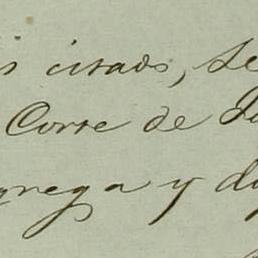 citado, se
Corre de
grega y di